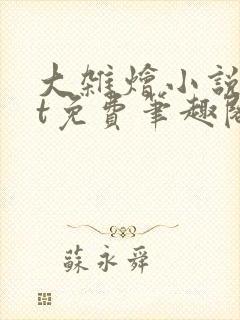 大雜燴小說
t免費筆趣閣
蘇永舜